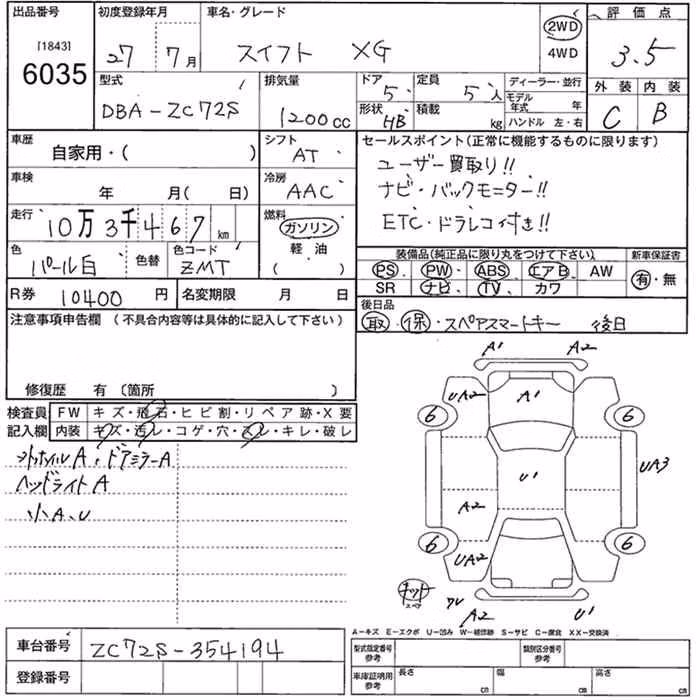 出品番号 初度登録年月 車名・グレード 2WD 評価点
[1843] 27 7月 スイフト XG 3.5
6035 4WD
型式 排気量 ドア 定員 ディーラー・並行 外装 内装
DBA-ZC72S 1200cc 5 5人 モデル年式 年 C B
形状 HB 積載 kg ハンドル 左・右
車歴 シフト セールスポイント(正常に機能するものに限ります)
自家用・( ) AT ユーザー買取り!!
車検 冷房 ナビ・バックモニター!!
年 月( 日) AAC
走行 燃料 ETC・ドラレコ付き!!
10万3千467km ガソリン
色 色替 色コード 軽・油 装備品(純正品に限り丸をつけて下さい) 新車保証書
パール白 ZMT ( ) PS PW ABS エアB AW 有・無
R券 10400円 名変期限 月 日 SR ナビ TV カワ
注意事項申告欄 (不具合内容等は具体的に記入して下さい) 後日品
取・保・スペアスマートキー 後日
修復歴 有 〔箇所 〕
検査員 FW キズ・飛石・ヒビ割・リペア跡・X要
記入欄 内装 キズ・汚レ・コゲ・穴・スレ・キレ・破レ
A1 A2
UA2 A1
6 6
A・ドアミラーA
ヘッドライトA U1 UA3
小A、U A2
6 6
UA2
スペア
A2 U1
A-キズ E-エクボ U-凹み W-補修跡 S-サビ C-腐食 XX-交換済
車台番号 ZC72S-354194 型式指定番号 参考 類別区分番号 参考
登録番号 車庫証明用 参考 長さ cm 幅 cm 高さ cm